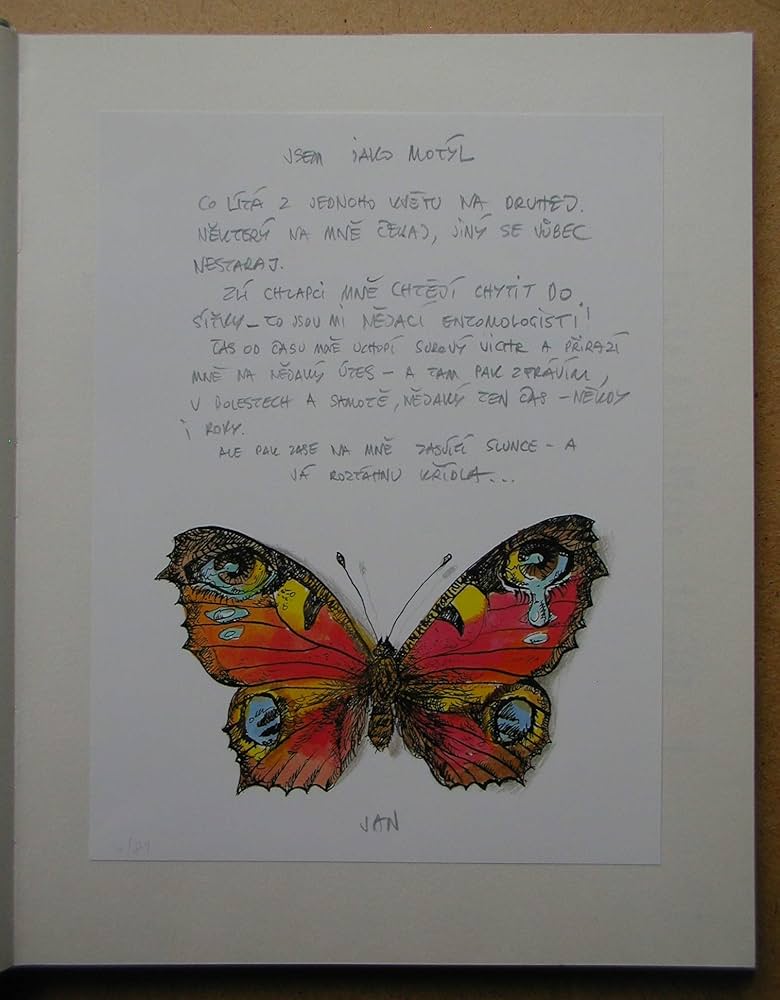 JSEM JAKO MOTÝL
CO LÍTÁ Z JEDNOHO KVĚTU NA DRUHEJ.
NĚKTERÝ NA MNĚ ČEKAJ, JINÝ SE VŮBEC
NESTARAJ.
ZLÍ CHLAPCI MNĚ CHTĚJÍ CHYTIT DO
SÍŤKY – TO JSOU MI NĚJACÍ ENTOMOLOGISTI!
ČAS OD ČASU MNĚ UCHOPÍ SUROVÝ VICHR A PŘIRAZÍ
MNĚ NA NĚJAKÝ ÚTES – A TAM PAK ZTRÁVÍM,
V BOLESTECH A SAMOTĚ, NĚJAKÝ TEN ČAS – NĚKDY
I ROKY.
ALE PAK ZASE NA MNĚ ZASVÍTÍ SLUNCE – A
JÁ ROZTÁHNU KŘÍDLA...
JAN